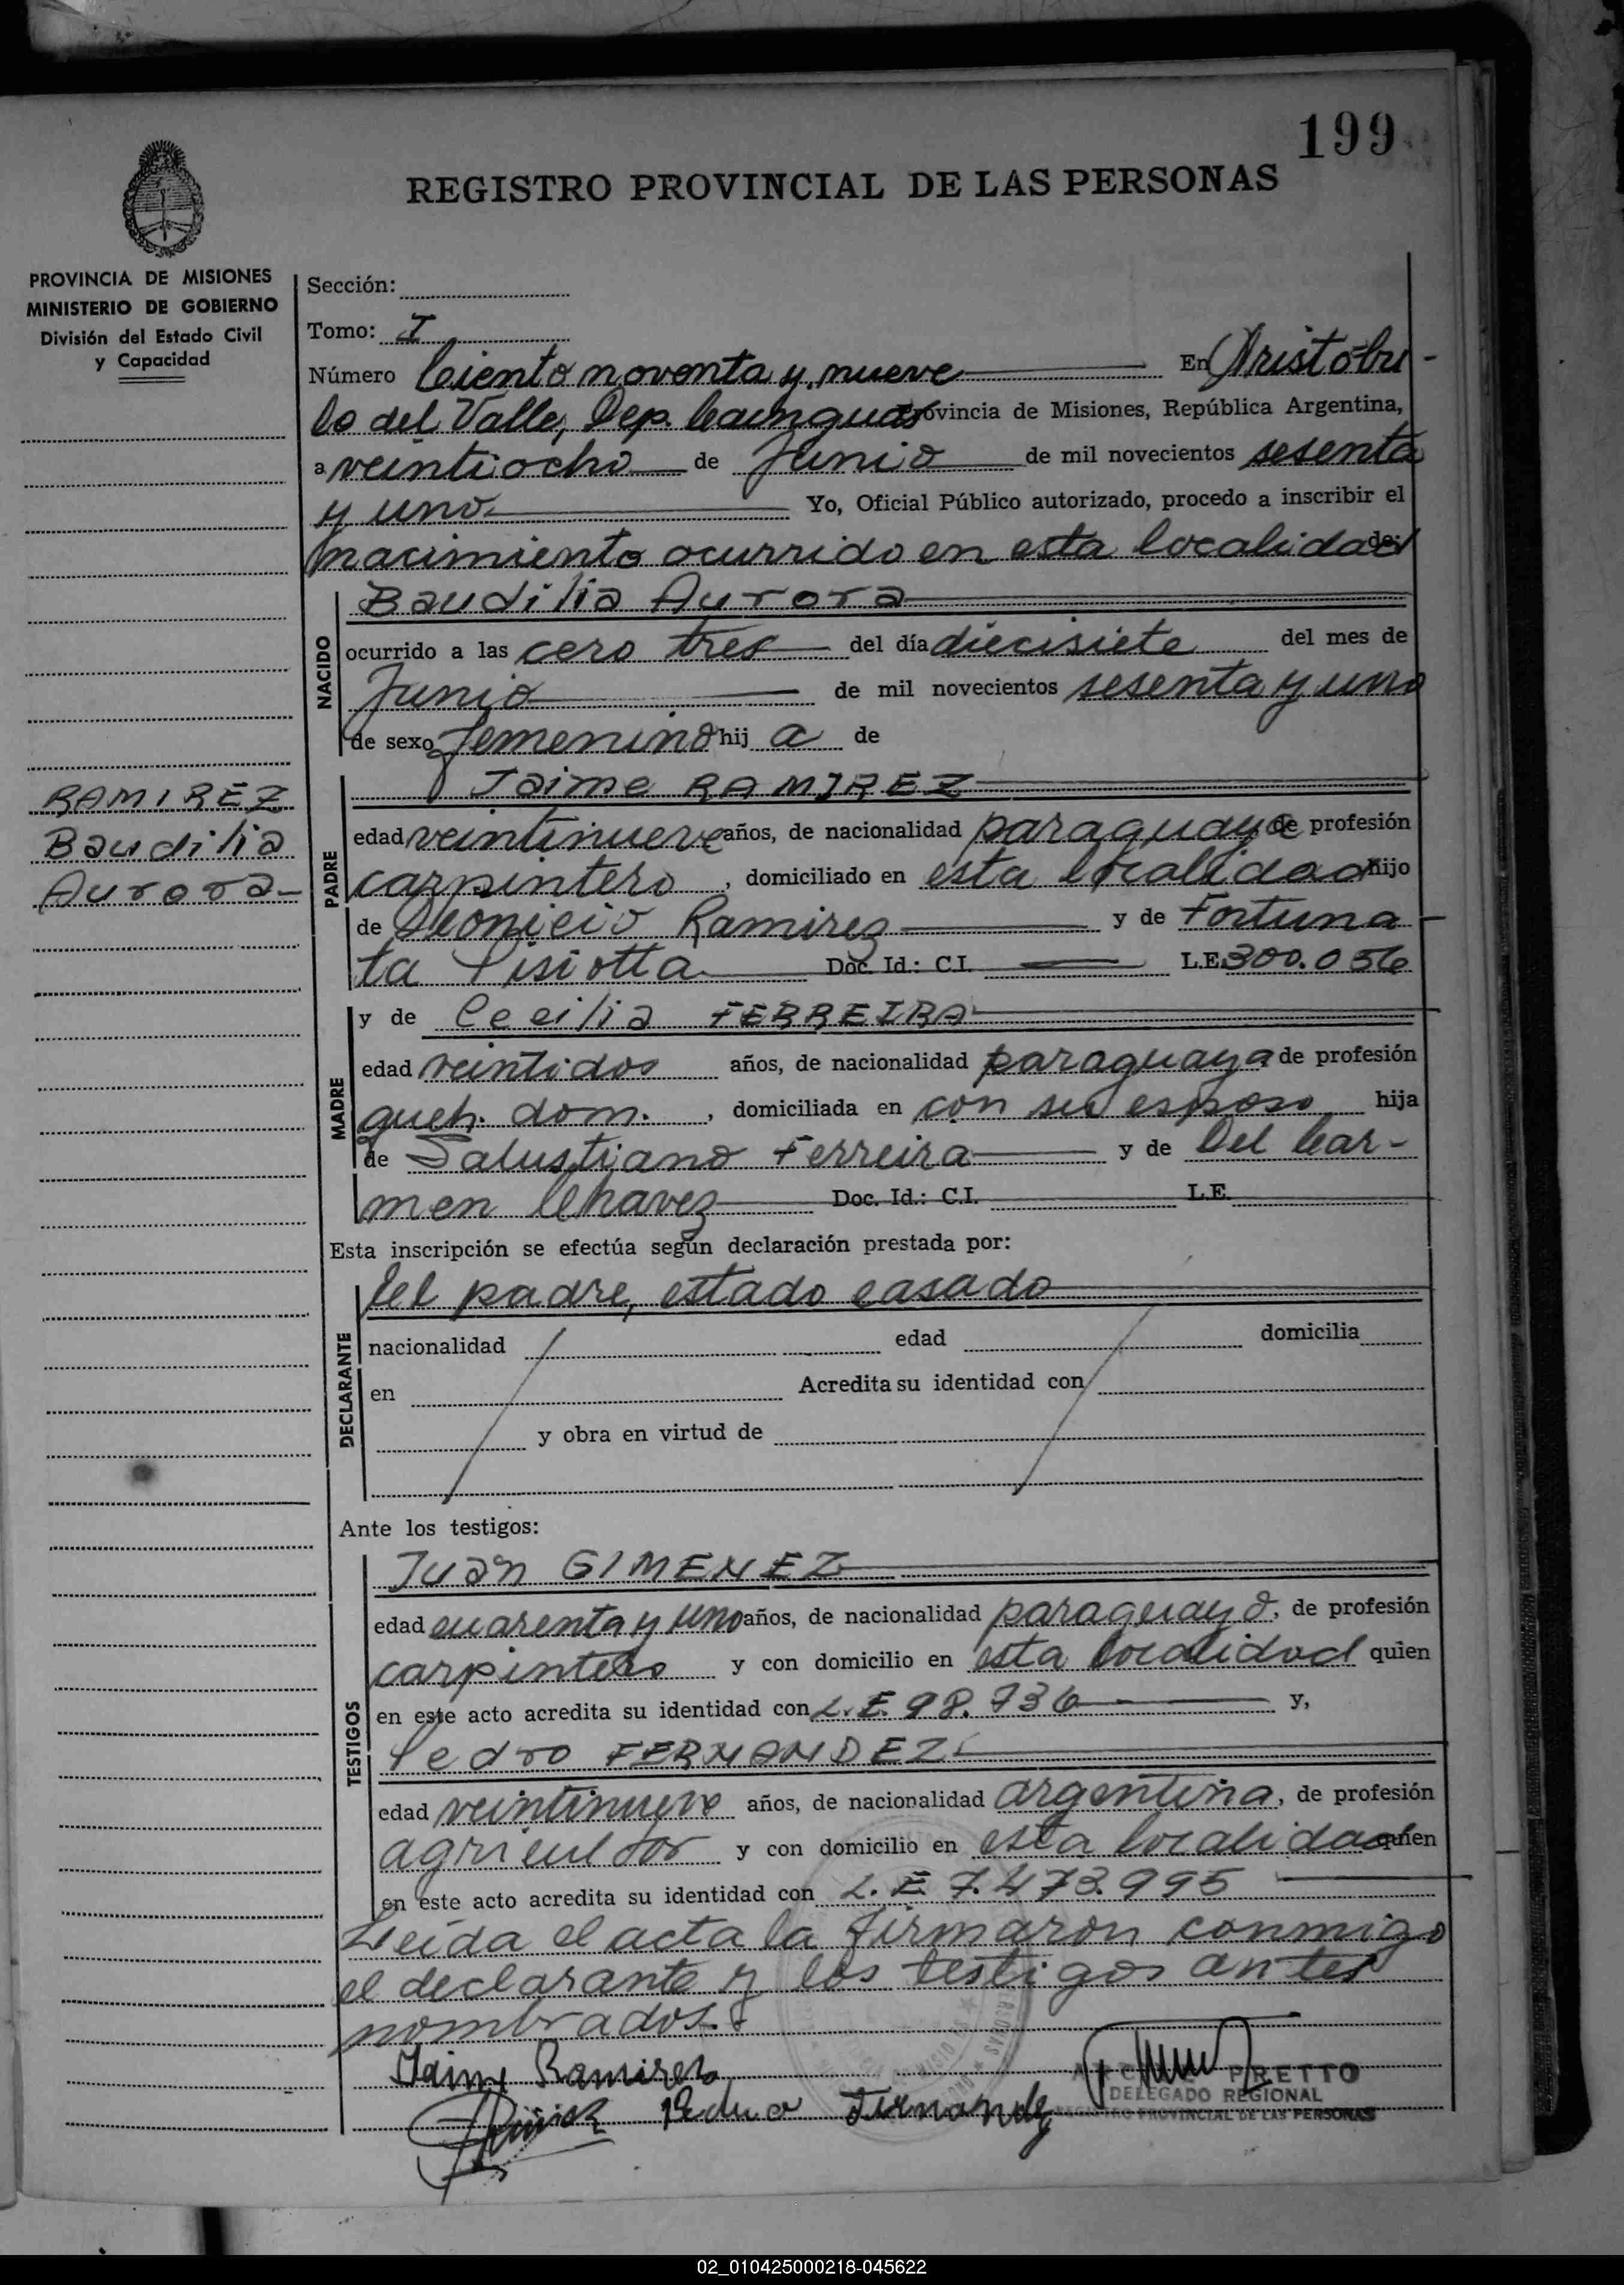 199
REGISTRO PROVINCIAL DE LAS PERSONAS
PROVINCIA DE MISIONES
MINISTERIO DE GOBIERNO
División del Estado Civil
y Capacidad
RAMIREZ
Baudilia
Aurora-
Sección:
Tomo: I
Número Ciento noventa y nueve En Aristóbu-
lo del Valle, Dep. Cainguas Provincia de Misiones, República Argentina,
a veintiocho de Junio de mil novecientos sesenta
y uno Yo, Oficial Público autorizado, procedo a inscribir el
nacimiento ocurrido en esta localidad de:
NACIDO
Baudilia Aurora
ocurrido a las cero tres del día diecisiete del mes de
Junio de mil novecientos sesenta y uno
de sexo femenino hij a de
PADRE
Jaime RAMIREZ
edad veintinueve años, de nacionalidad paraguayo de profesión
carpintero, domiciliado en esta localidad hijo
de Leonicio Ramirez y de Fortuna-
ta Pisiotta Doc. Id.: C.I. L.E. 300.056
MADRE
y de Cecilia FERREIRA
edad veintidos años, de nacionalidad paraguaya de profesión
queh. dom., domiciliada en con su esposo hija
de Salustiano Ferreira y de Del Car-
men Chavez Doc. Id.: C.I. L.E.
Esta inscripción se efectúa según declaración prestada por:
DECLARANTE
el padre, estado casado
nacionalidad edad domicilia
en Acredita su identidad con
y obra en virtud de
Ante los testigos:
TESTIGOS
Juan GIMENEZ
edad cuarenta y uno años, de nacionalidad paraguayo, de profesión
carpintero y con domicilio en esta localidad quien
en este acto acredita su identidad con L.E. 98.736 y,
Pedro FERNANDEZ
edad veintinueve años, de nacionalidad argentina, de profesión
agricultor y con domicilio en esta localidad quien
en este acto acredita su identidad con L.E 7.473.995
Leída el acta la firmaron conmigo
el declarante y los testigos antes
nombrados.
Jaime Ramirez
Pedro Fernandez
PIRETTO
DELEGADO REGIONAL
REGISTRO PROVINCIAL DE LAS PERSONAS
02_010425000218-045622